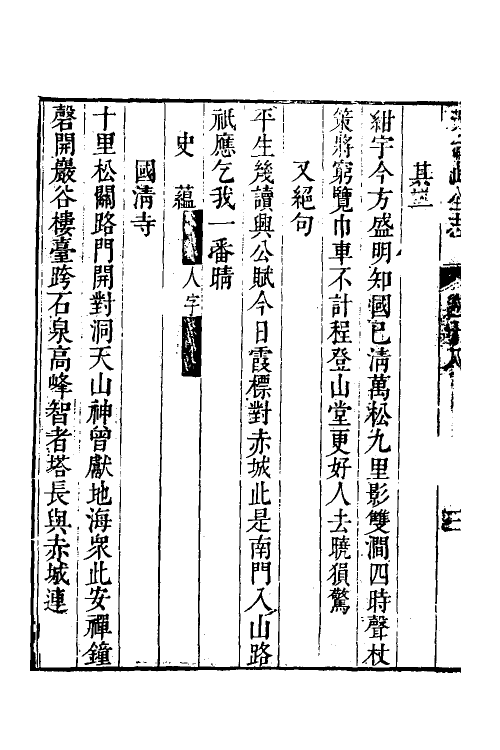 其三
紺宇今方盛明知國已淸萬松九里影雙澗四時聲杖
策將窮覽巾車不計程登山堂更好人去曉猿驚
又絕句
平生幾讀興公賦今日霞標對赤城此是南門入山路
祇應乞我一番晴
史蘊 人字
國淸寺
十里松關路門開對洞天山神曾獻地海衆此安禪鐘
磬開巖谷樓臺跨石泉高峰智者塔長與赤城連